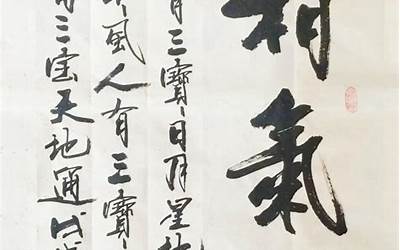 精氣
有三寶日月星地
風人有三寶
三宝天地通戊